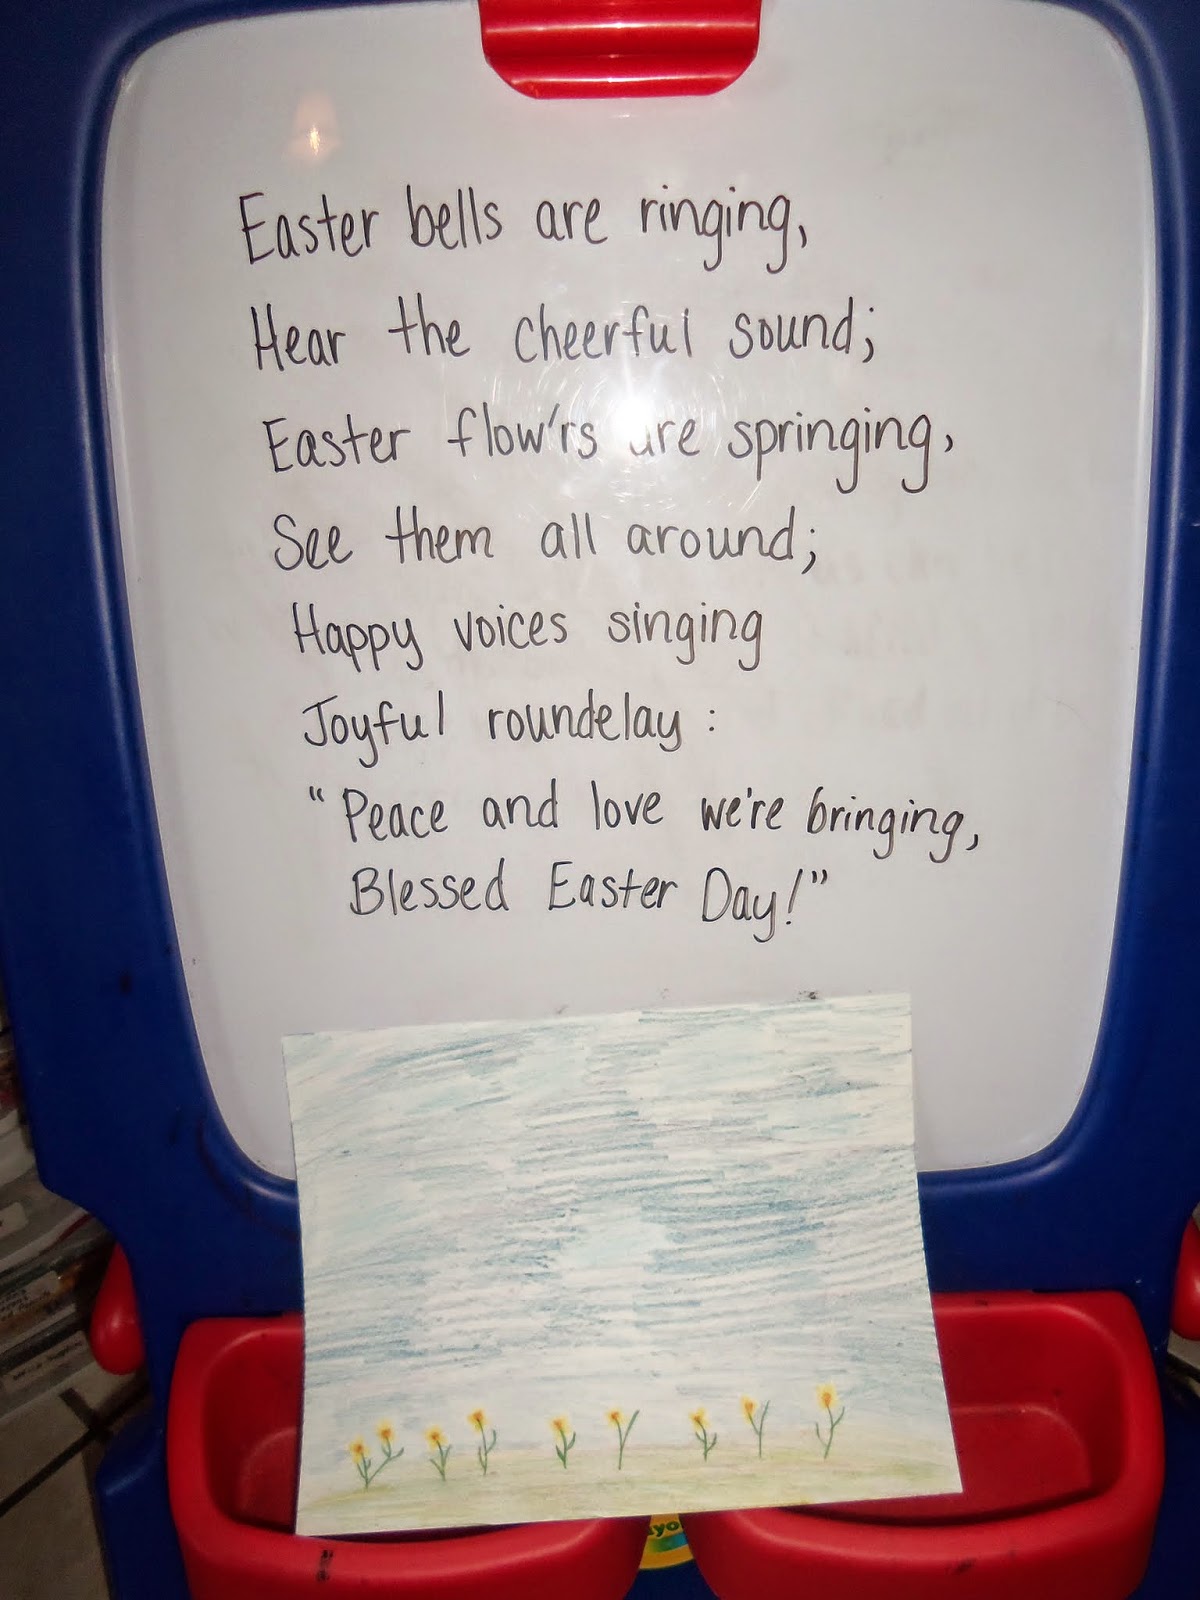 Easter bells are ringing,
Hear the cheerful sound;
Easter flow'rs are springing,
See them all around;
Happy voices singing
Joyful roundelay:
"Peace and love we're bringing,
Blessed Easter Day!"